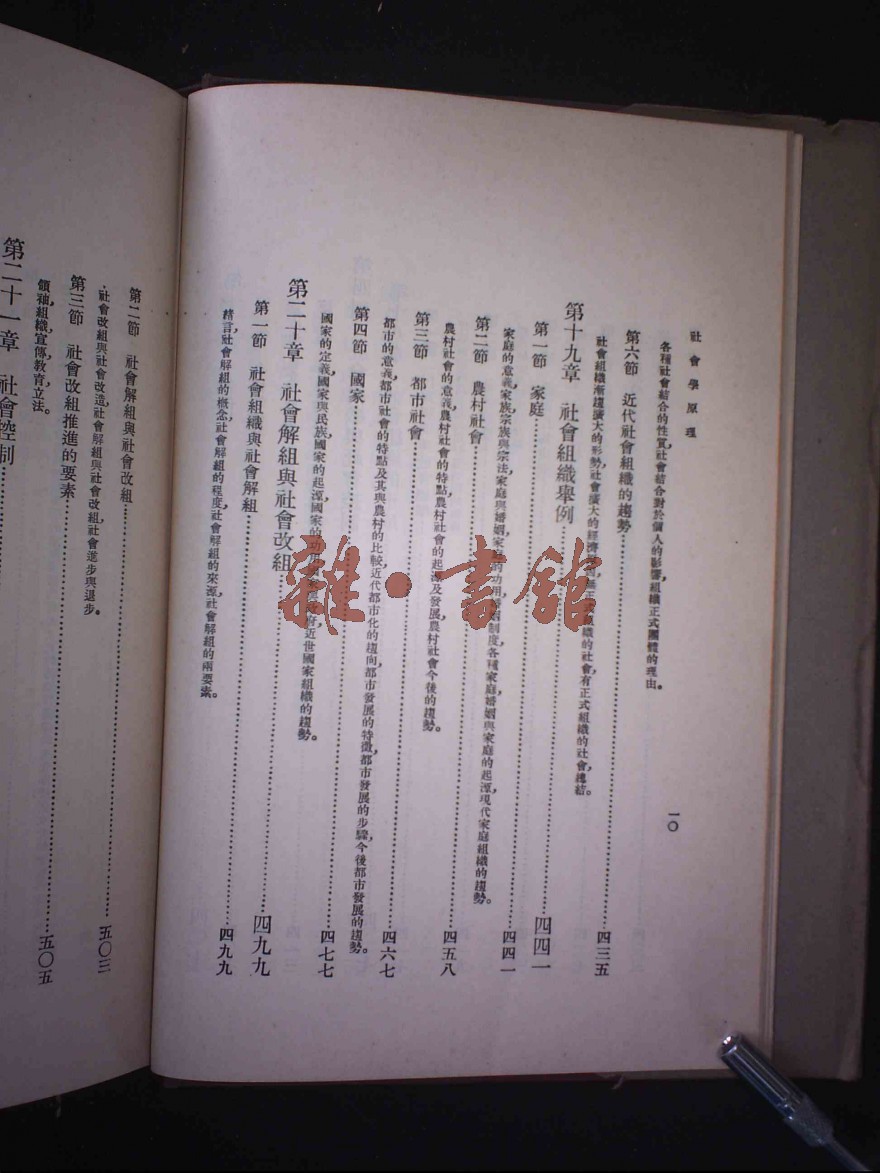 社會學原理
一〇
各種社會結合的性質,社會結合對於個人的影響,組織正式團體的理由。
第六節 近代社會組織的趨勢……四三五
社會組織漸趨擴大的形勢,社會擴大的經濟 無正式組織的社會,有正式組織的社會,總結。
第十九章 社會組織舉例……四四一
第一節 家庭……四四一
家庭的意義,家族宗族與宗法,家庭與婚姻,家庭的功用,婚姻制度,各種家庭,婚姻與家庭的起源,現代家庭組織的趨勢。
第二節 農村社會……四五八
農村社會的意義,農村社會的特點,農村社會的起源及發展,農村社會今後的趨勢。
第三節 都市社會……四六七
都市的意義,都市社會的特點及其與農村的比較,近代都市化的趨向,都市發展的特徵,都市發展的步驟,今後都市發展的趨勢。
第四節 國家……四七七
國家的定義,國家與民族,國家的起源,國家的功用,國家與政府,近世國家組織的趨勢。
第二十章 社會解組與社會改組……四九九
第一節 社會組織與社會解組……四九九
緒言,社會解組的概念,社會解組的程度,社會解組的來源,社會解組的兩要素。
第二節 社會解組與社會改組……五〇三
社會改組與社會改造,社會解組與社會改組,社會進步與退步。
第三節 社會改組推進的要素……五〇五
領袖,組織,宣傳,教育,立法。
第二十一章 社會控制……
雜·書館